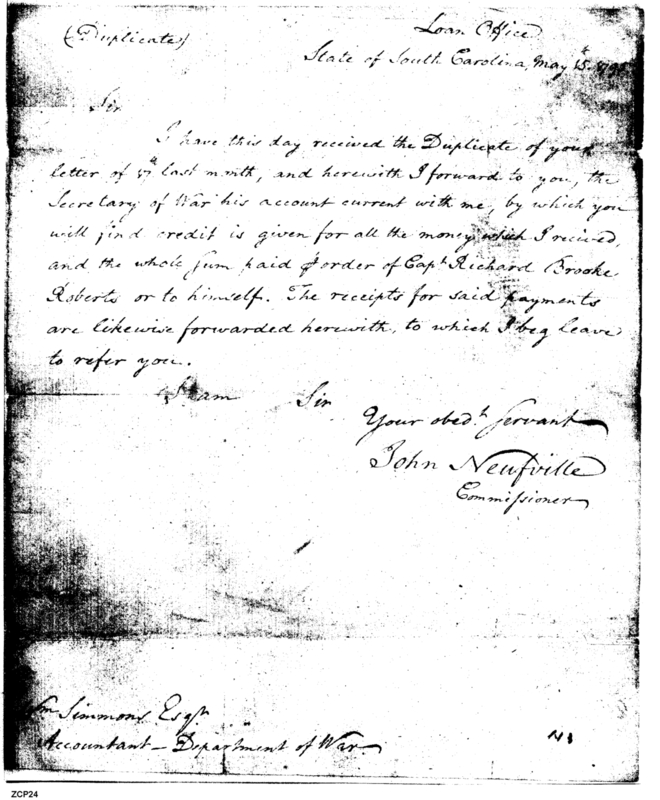 (Duplicate)
Loan Office
State of South Carolina, May 15th
Sir
I have this day received the Duplicate of your
letter of last month, and herewith I forward to you, the
Secretary of War his account current with me, by which you
will find credit is given for all the money which I recived,
and the whole sum paid order of Capt. Richard Brooke
Roberts or to himself. The receipts for said payments
are likewise forwarded herewith, to which I beg leave
to refer you.
I am Sir
Your obedt. Servant
John Neufville
Commissioner
Wm Simmons Esqr.
Accountant - Department of War
ZCP24